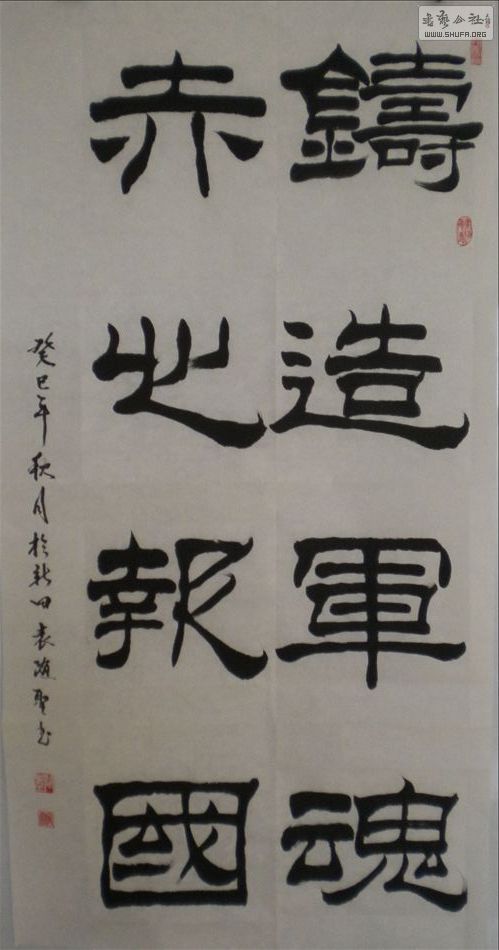 鑄造軍魂
赤心報國
癸巳年秋月於新田袁隨聖書
書藝公社
WWW.SHUFA.ORG